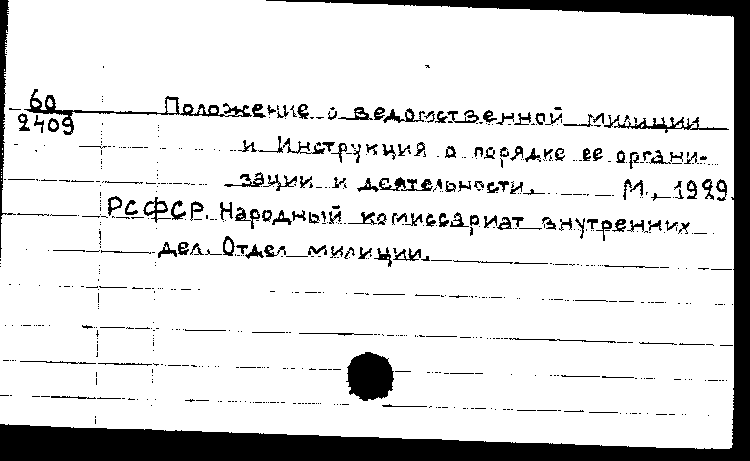 60
2409
Положение о ведомственной милиции
и Инструкция о порядке ее органи-
зации и деятельности. М., 1929.
РСФСР. Народный комиссариат внутренних
дел. Отдел милиции.